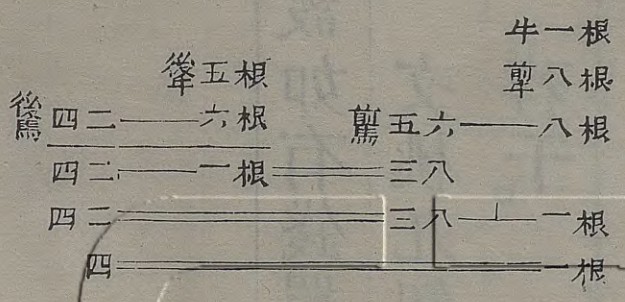 牛一根
五根 八根
後馬四二——六根 前馬五六——八根
四二——一根══三八
四二══三八⊥一根
四══一根